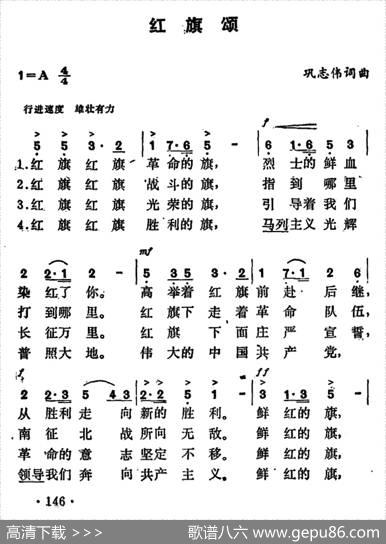 红旗颂
1=A 4/4
巩志伟词曲
行进速度 雄壮有力
f
5 5 3·2 | 1 7·6 5 - | 6 1·6 5 3
1.红旗红旗 革命的旗， 烈士的鲜血
2.红旗红旗 战斗的旗， 指到哪里
3.红旗红旗 光荣的旗， 引导着我们
4.红旗红旗 胜利的旗， 马列主义光辉
mf
2 2·1 2 - | 5 35 3·2 | 1 7·1 2 6
染红了你。 高举着红旗前赴后继，
打到哪里。 红旗下走着革命队伍，
长征万里。 红旗下面庄严宣誓，
普照大地。 伟大的中国共产党，
f ff
从胜利走向新的胜利。 鲜红的旗，
南征北战所向无敌。 鲜红的旗，
革命的意志坚定不移。 鲜红的旗，
领导我们奔向共产主义。 鲜红的旗，
·146·
高清下载 >>> 歌谱八六 www.gepu86.com